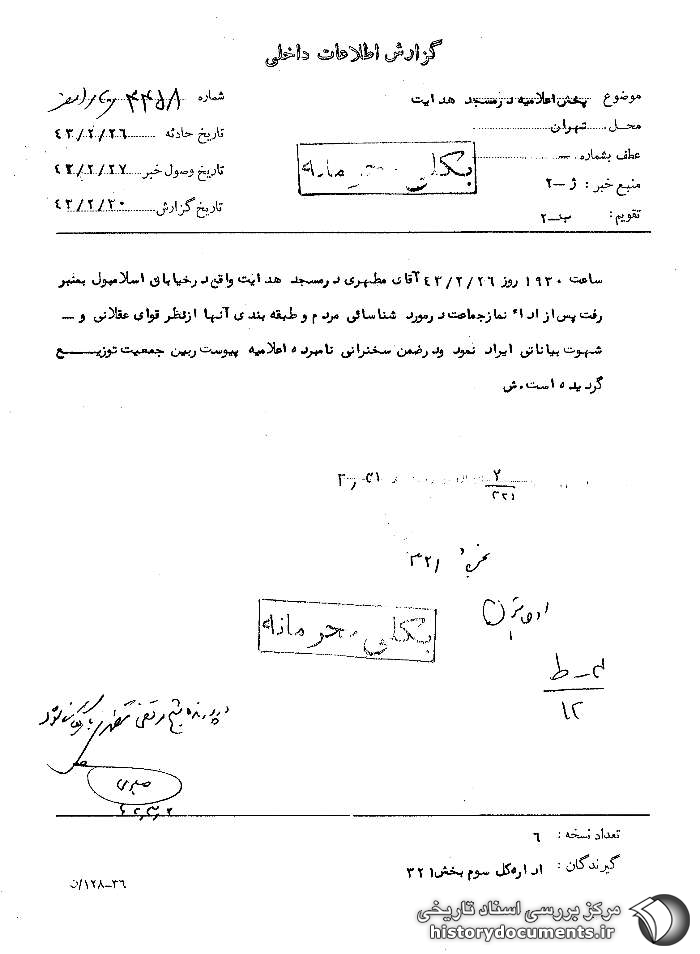 گزارش اطلاعات داخلی
موضوع پخش اعلامیه در مسجد هدایت
شماره ۴۴۵۸
محل تهران
تاریخ حادثه ۴۳/۲/۲۶
عطف بشماره —
بکلی محرمانه
تاریخ وصول خبر ۴۳/۲/۲۷
منبع خبر : ژ-۲
تاریخ گزارش ۴۳/۲/۳۰
تقویم : ب-۲
ساعت ۱۹۳۰ روز ۴۳/۲/۲۶ آقای مطهری در مسجد هدایت واقع در خیابان اسلامبول بمنبر
رفت پس از اداء نماز جماعت در مورد شناسائی مردم و طبقه بندی آنها از نظر قوای عقلانی و —
شهوت بیاناتی ایراد نمود ودر ضمن سخنرانی نامبرده اعلامیه پیوست ربین جمعیت توزیـــع
گردیده است.ش
۲
۳۲۱
بخش ۳۲۱
بکلی محرمانه
۱۲
در پرونده شیخ مرتضی مطهری بایگانی شود
صبری
تعداد نسخه : ۶
گیرندگان : اداره کل سوم بخش ۳۲۱
۳۶-۱۲۸/ن
مرکز بررسی اسناد تاریخی
historydocuments.ir